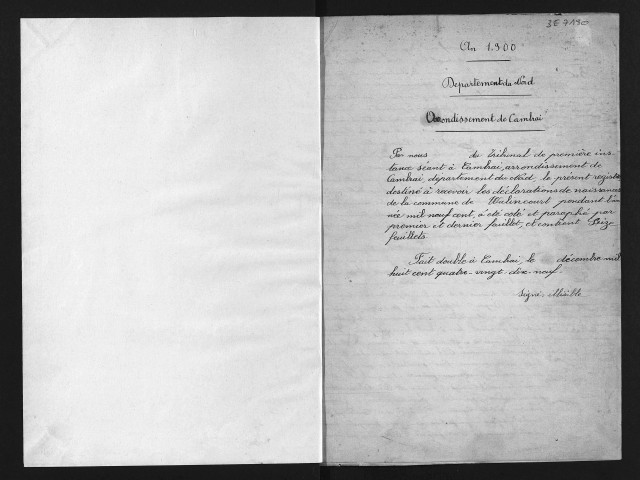 3E 7190
An 1900
Département du Nord
Arrondissement de Cambrai
Par nous du Tribunal de première ins-
tance séant à Cambrai, arrondissement de
Cambrai, département du Nord, le présent registre
destiné à recevoir les déclarations de naissances
de la commune de Walincourt pendant l'an-
née mil neuf cent, a été coté et paraphé par
premier et dernier feuillet, et contient Seize
feuillets.
Fait double à Cambrai, le décembre mil
huit cent quatre-vingt dix-neuf.
Signé: